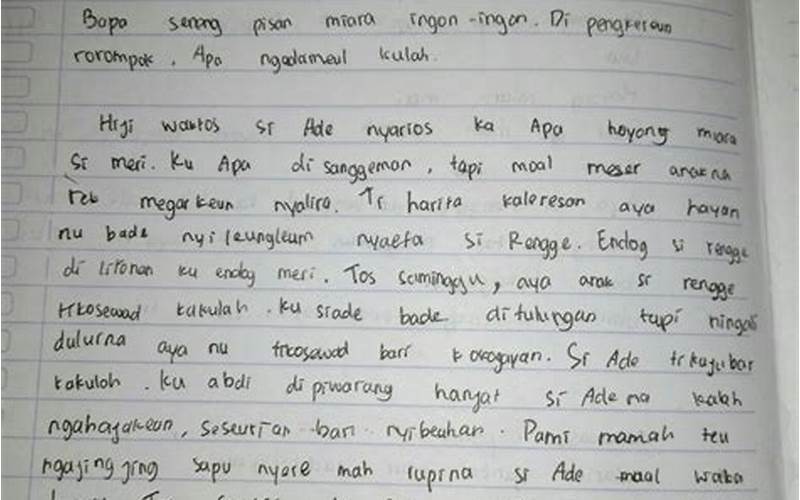 Bapa senang pisan miara ingon-ingon. Di pengkeraun
rorompok, Apa ngadameul kulah.
Hiji waktos si Ade nyarios ka Apa hoyong miara
si meri. Ku Apa di sanggeman, tapi moal meser anakna
rek megarkeun nyalira. Ti harita kaleresan aya hayam
nu bade nyileungleum nyaeta si Rengge. Endog si rengge
di litonan ku endog meri. Tos saminggu, aya anak si rengge
tikosewad kakulah. Ku siade bade ditulungan tapi ningali
dulurna aya nu ticosewad bari kokogayan. Si Ade tikajubar
kakulah. Ku abdi di piwarang hanjat si Ade na kalah
ngahajakeun, seseurian bari nyibeuhan. Pami mamah teu
ngajingjing sapu nyere mah rupina si Ade moal waka